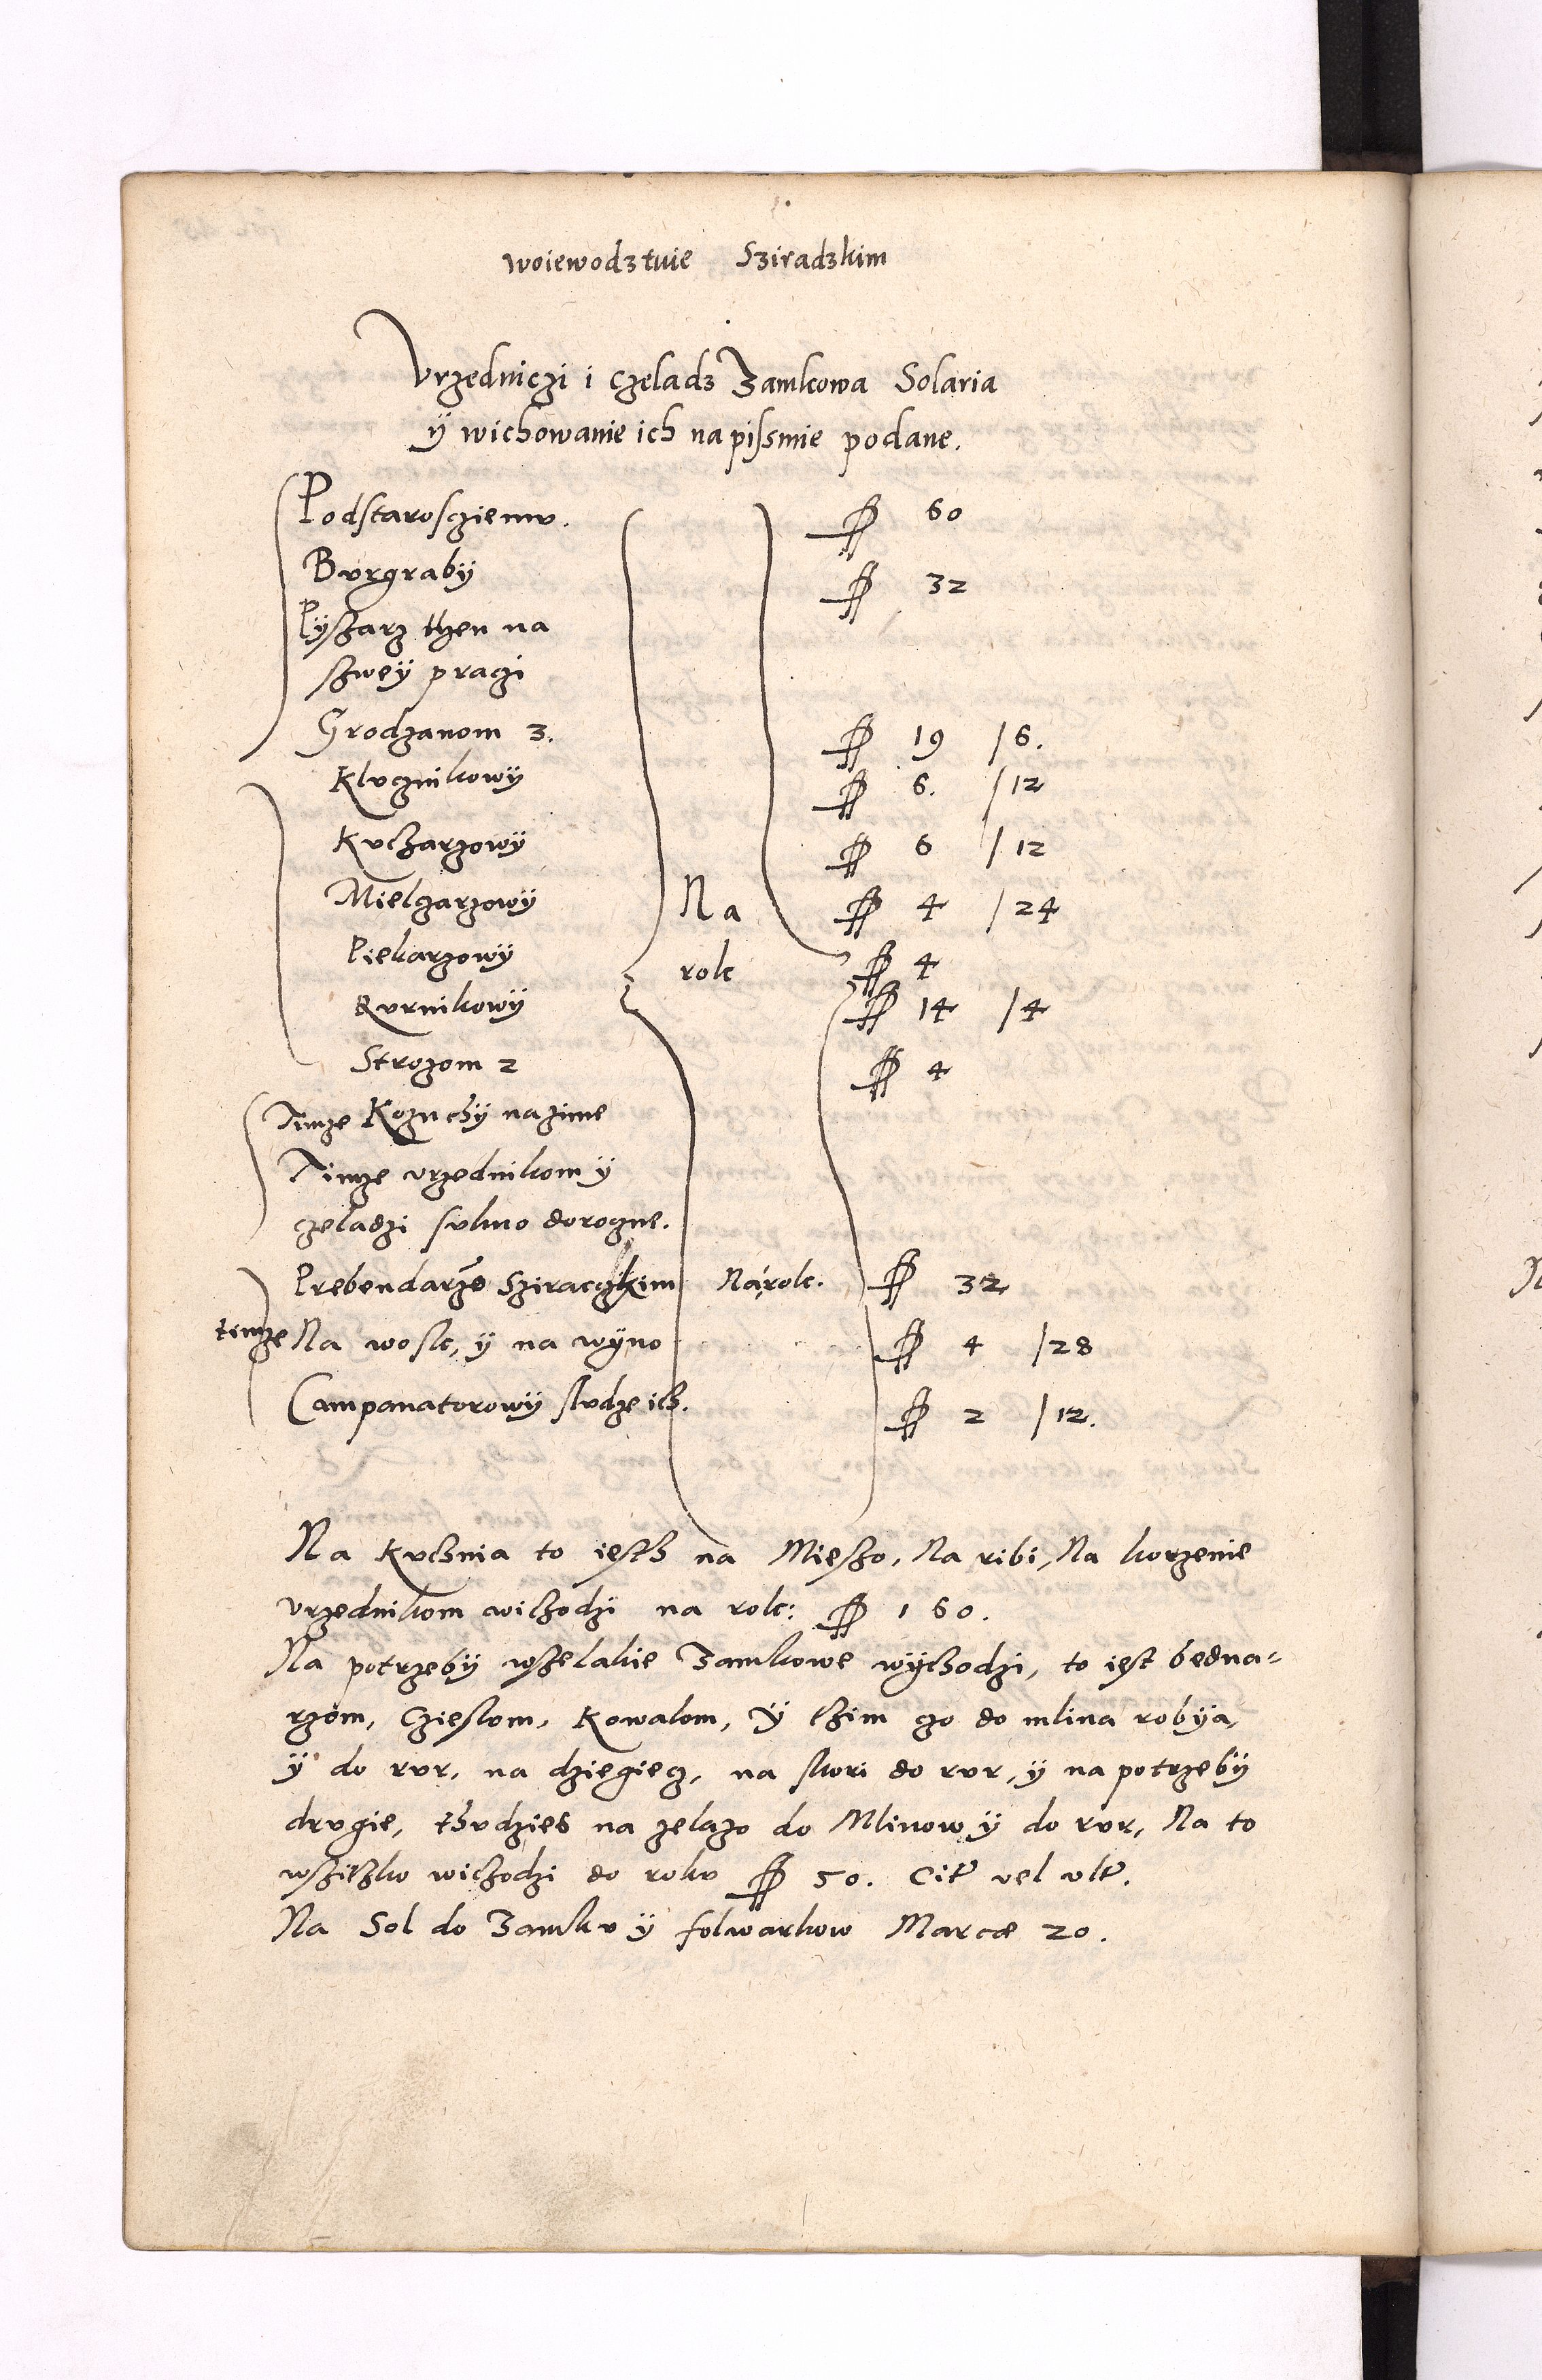 woiewodztwie Sziradzkim
Vrzedniczi i czeladz Zamkowa Solaria
ÿ wichowanie ich na pissmie podane.
Podstaroscziemu. fl 60
Burgrabÿ fl 32
Pÿszarz then na
szweÿ praczi
Grodzanom 3. fl 19 / 6.
Klucznikowÿ fl 6. / 12
Kucharzowÿ fl 6 / 12
Mielczarzowÿ Na fl 4 / 24
Piekarzowÿ rok fl 4
Kurnikowÿ fl 14 / 4
Strozom 2 fl 4
Timze Kozuchÿ na zime
Timze urzednikom ÿ
czeladzi sukno doroczne.
Prebendarzo Sziraczkim Na rok. fl 32
timze Na wosk, ÿ na wÿno fl 4 / 28
Campanatorowÿ sludze ich. fl 2 / 12.
Na Kuchnia to iesth na Mieszo, Na ribi, Na korzenie
urzednikom wichodzi na rok: fl 160.
Na potrzebÿ wszelakie Zamkowe wÿchodzi, to iest bedna-
rzom, Czieslom, Kowalom, Ÿ thim czo do mlina robÿa,
ÿ do rur, na dziegiecz, na skori do rur, ÿ na potrzebÿ
drugie, thudzies na zelazo do Mlinow ÿ do rur, Na to
wszithko wichodzi do roku fl 50. Cit vel ult.
Na Sol do Zamku ÿ folwarkow Marcæ 20.